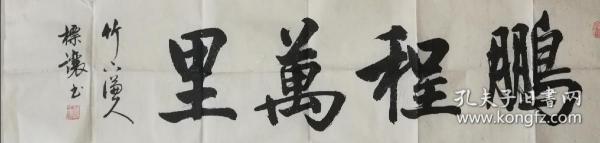 鵬程萬里
竹下漁人
標讓书
孔夫子旧書网
www.kongfz.com